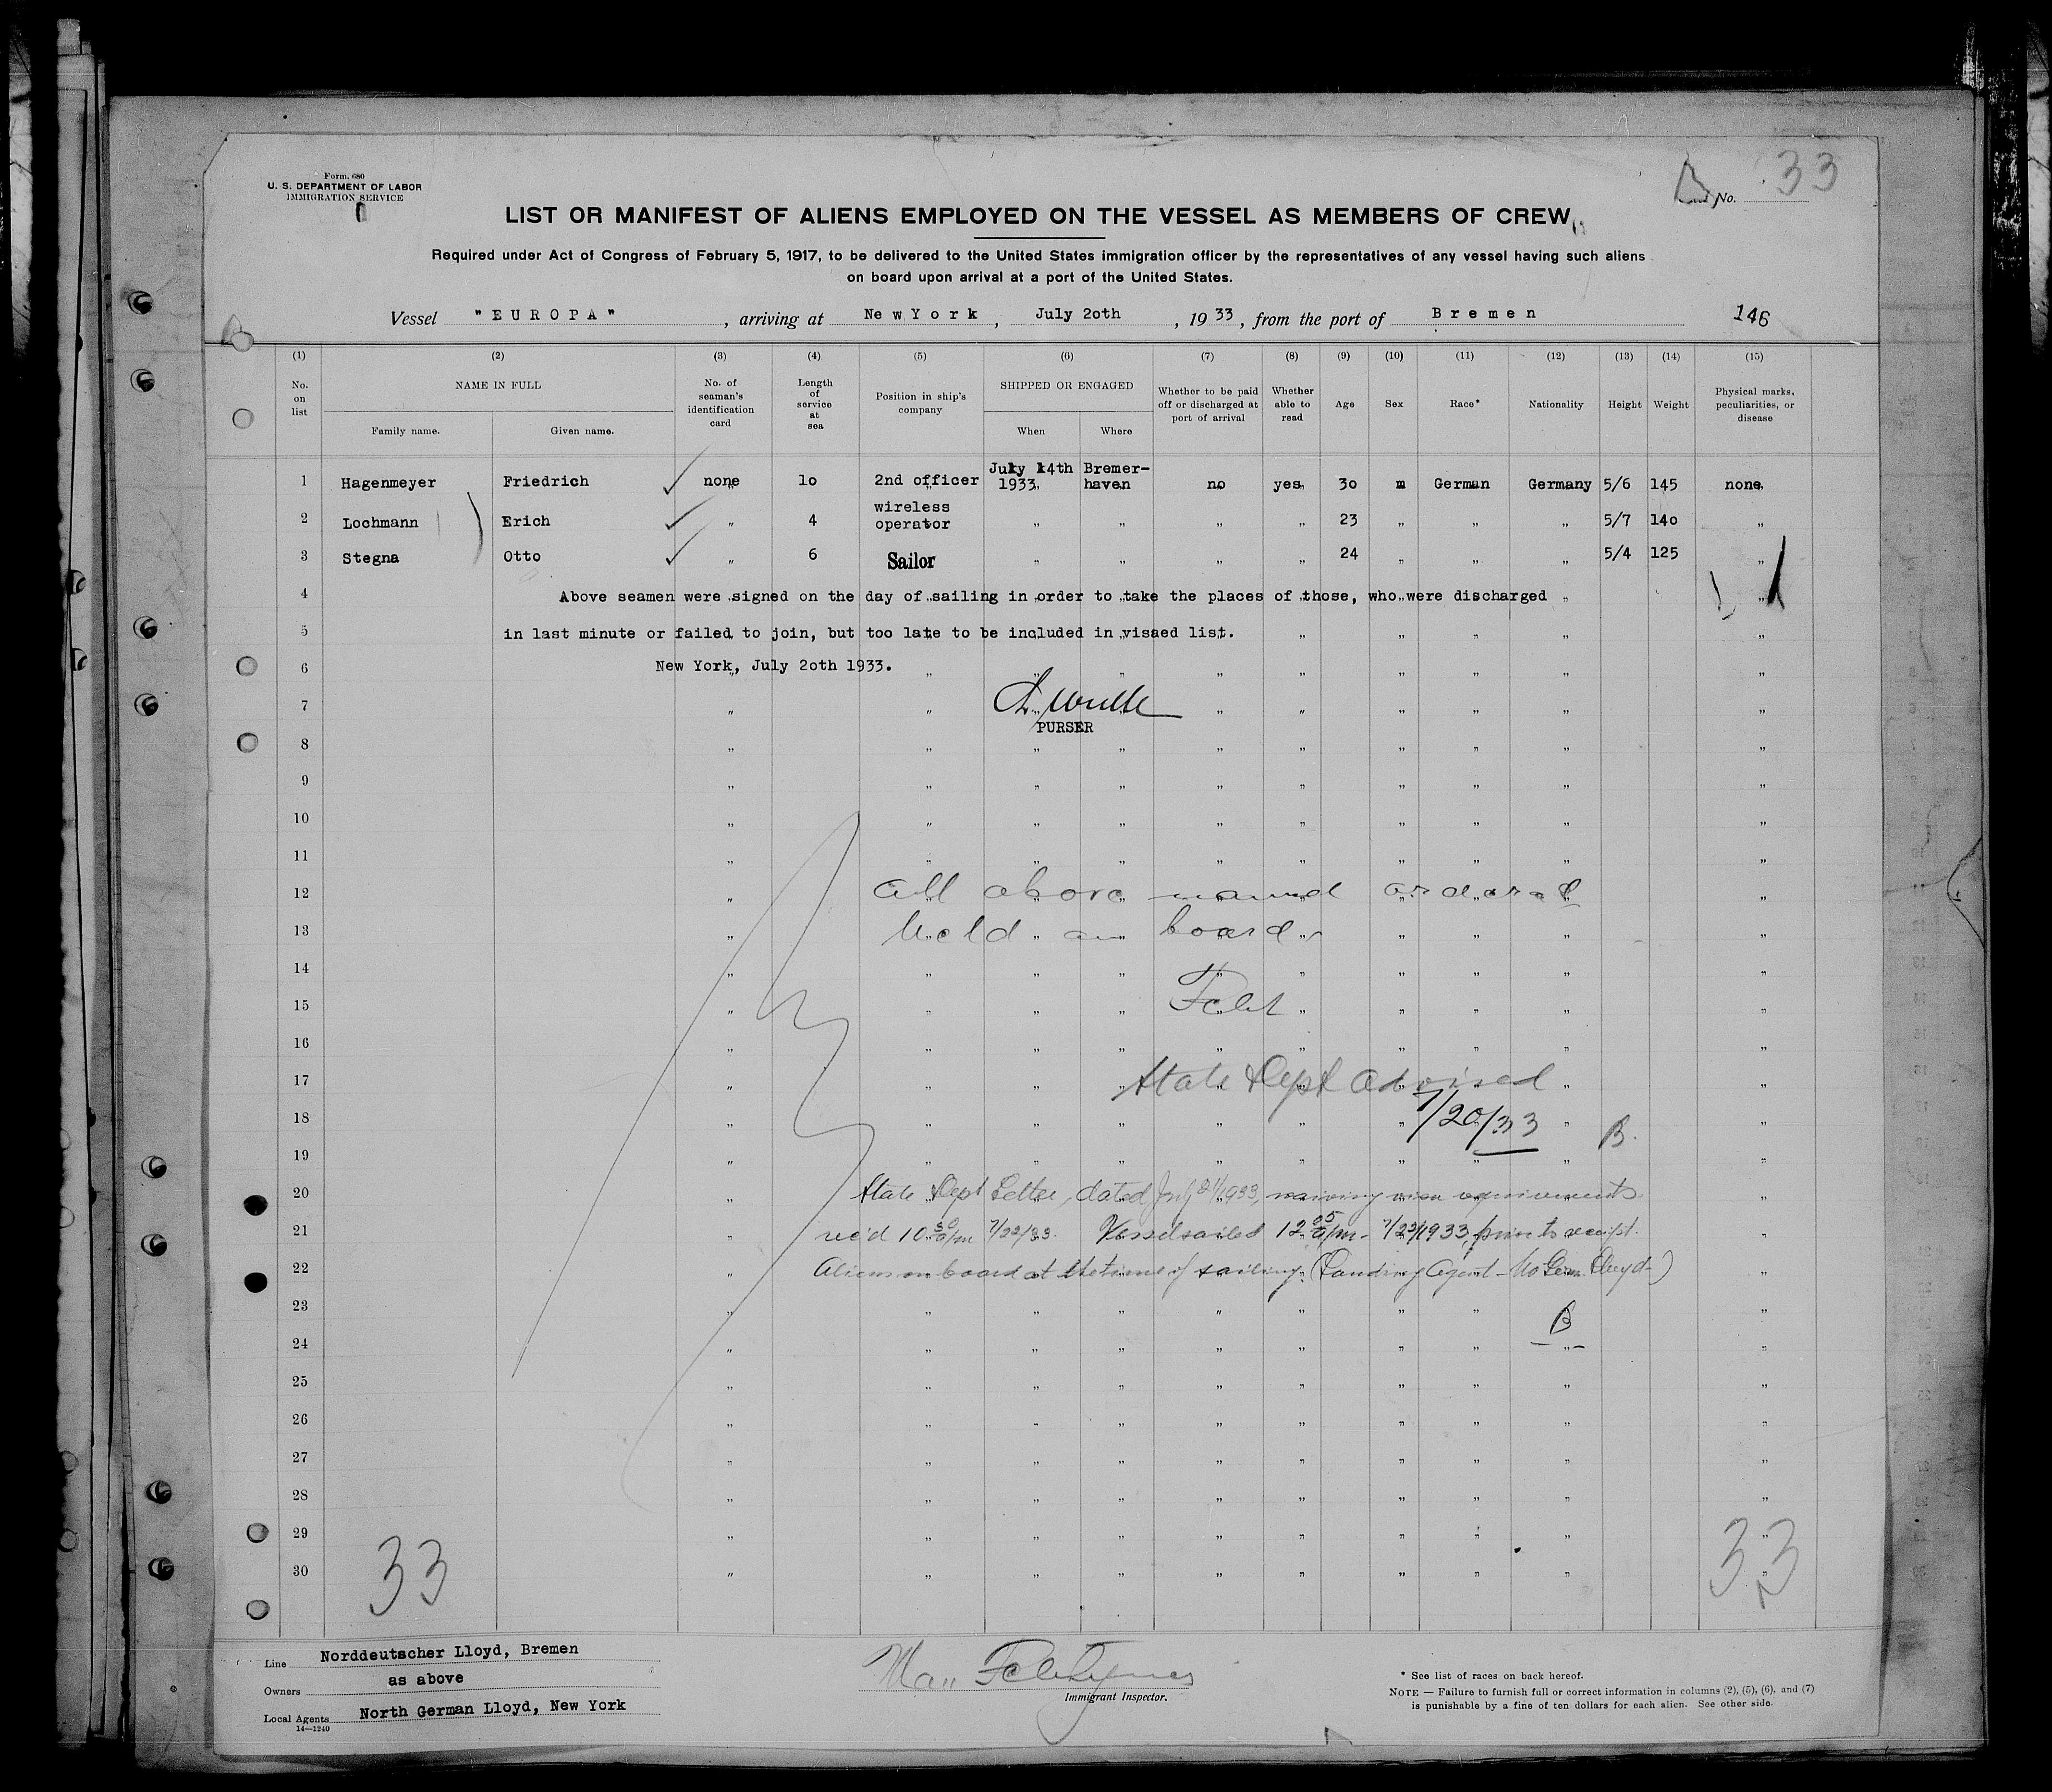 Form. 680
U. S. DEPARTMENT OF LABOR
IMMIGRATION SERVICE
No. 33
LIST OR MANIFEST OF ALIENS EMPLOYED ON THE VESSEL AS MEMBERS OF CREW
Required under Act of Congress of February 5, 1917, to be delivered to the United States immigration officer by the representatives of any vessel having such aliens
on board upon arrival at a port of the United States.
Vessel "EUROPA", arriving at New York, July 2oth, 1933, from the port of Bremen 146
(1) (2) (3) (4) (5) (6) (7) (8) (9) (10) (11) (12) (13) (14) (15)
No. on list NAME IN FULL Family name. Given name. No. of seaman's identification card Length of service at sea Position in ship's company SHIPPED OR ENGAGED When Where Whether to be paid off or discharged at port of arrival Whether able to read Age Sex Race* Nationality Height Weight Physical marks, peculiarities, or disease
1 Hagenmeyer Friedrich none 1o 2nd officer July 14th 1933 Bremerhaven no yes 3o m German Germany 5/6 145 none
2 Lochmann Erich " 4 wireless operator " " " " 23 " " " 5/7 14o "
3 Stegna Otto " 6 Sailor " " " " 24 " " " 5/4 125 "
4 Above seamen were signed on the day of sailing in order to take the places of those, who were discharged
5 in last minute or failed to join, but too late to be included in visaed list.
6 New York, July 2oth 1933.
7
PURSER
8
9
10
11
12 All above named ordered
13 held on board
14
15 Felt
16
17 State Dept advised
18 7/20/33 B.
19
20 State Dept Letter, dated July 21/1933, waiving visa requirements
21 rec'd 10 30 a/m 7/22/33. Vessel sailed 12 05 a/m - 7/22/1933, prior to receipt.
22 Aliens on board at the time of sailing. (Landing Agent - No Ger. Lloyd -)
23 B
24
25
26
27
28
29
30
33 33
Line Norddeutscher Lloyd, Bremen
Owners as above
Local Agents North German Lloyd, New York
14—1240
Immigrant Inspector.
* See list of races on back hereof.
NOTE — Failure to furnish full or correct information in columns (2), (5), (6), and (7)
is punishable by a fine of ten dollars for each alien. See other side.